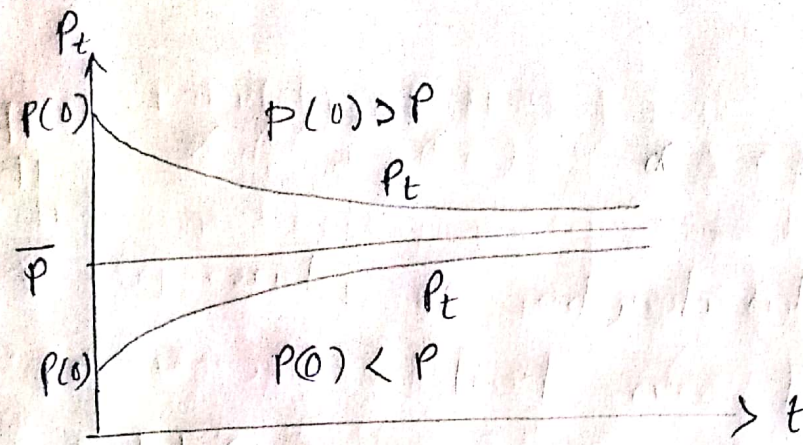 Pt
P(0)
P(0) > P
Pt
P̅
Pt
P(0)
P(0) < P
t